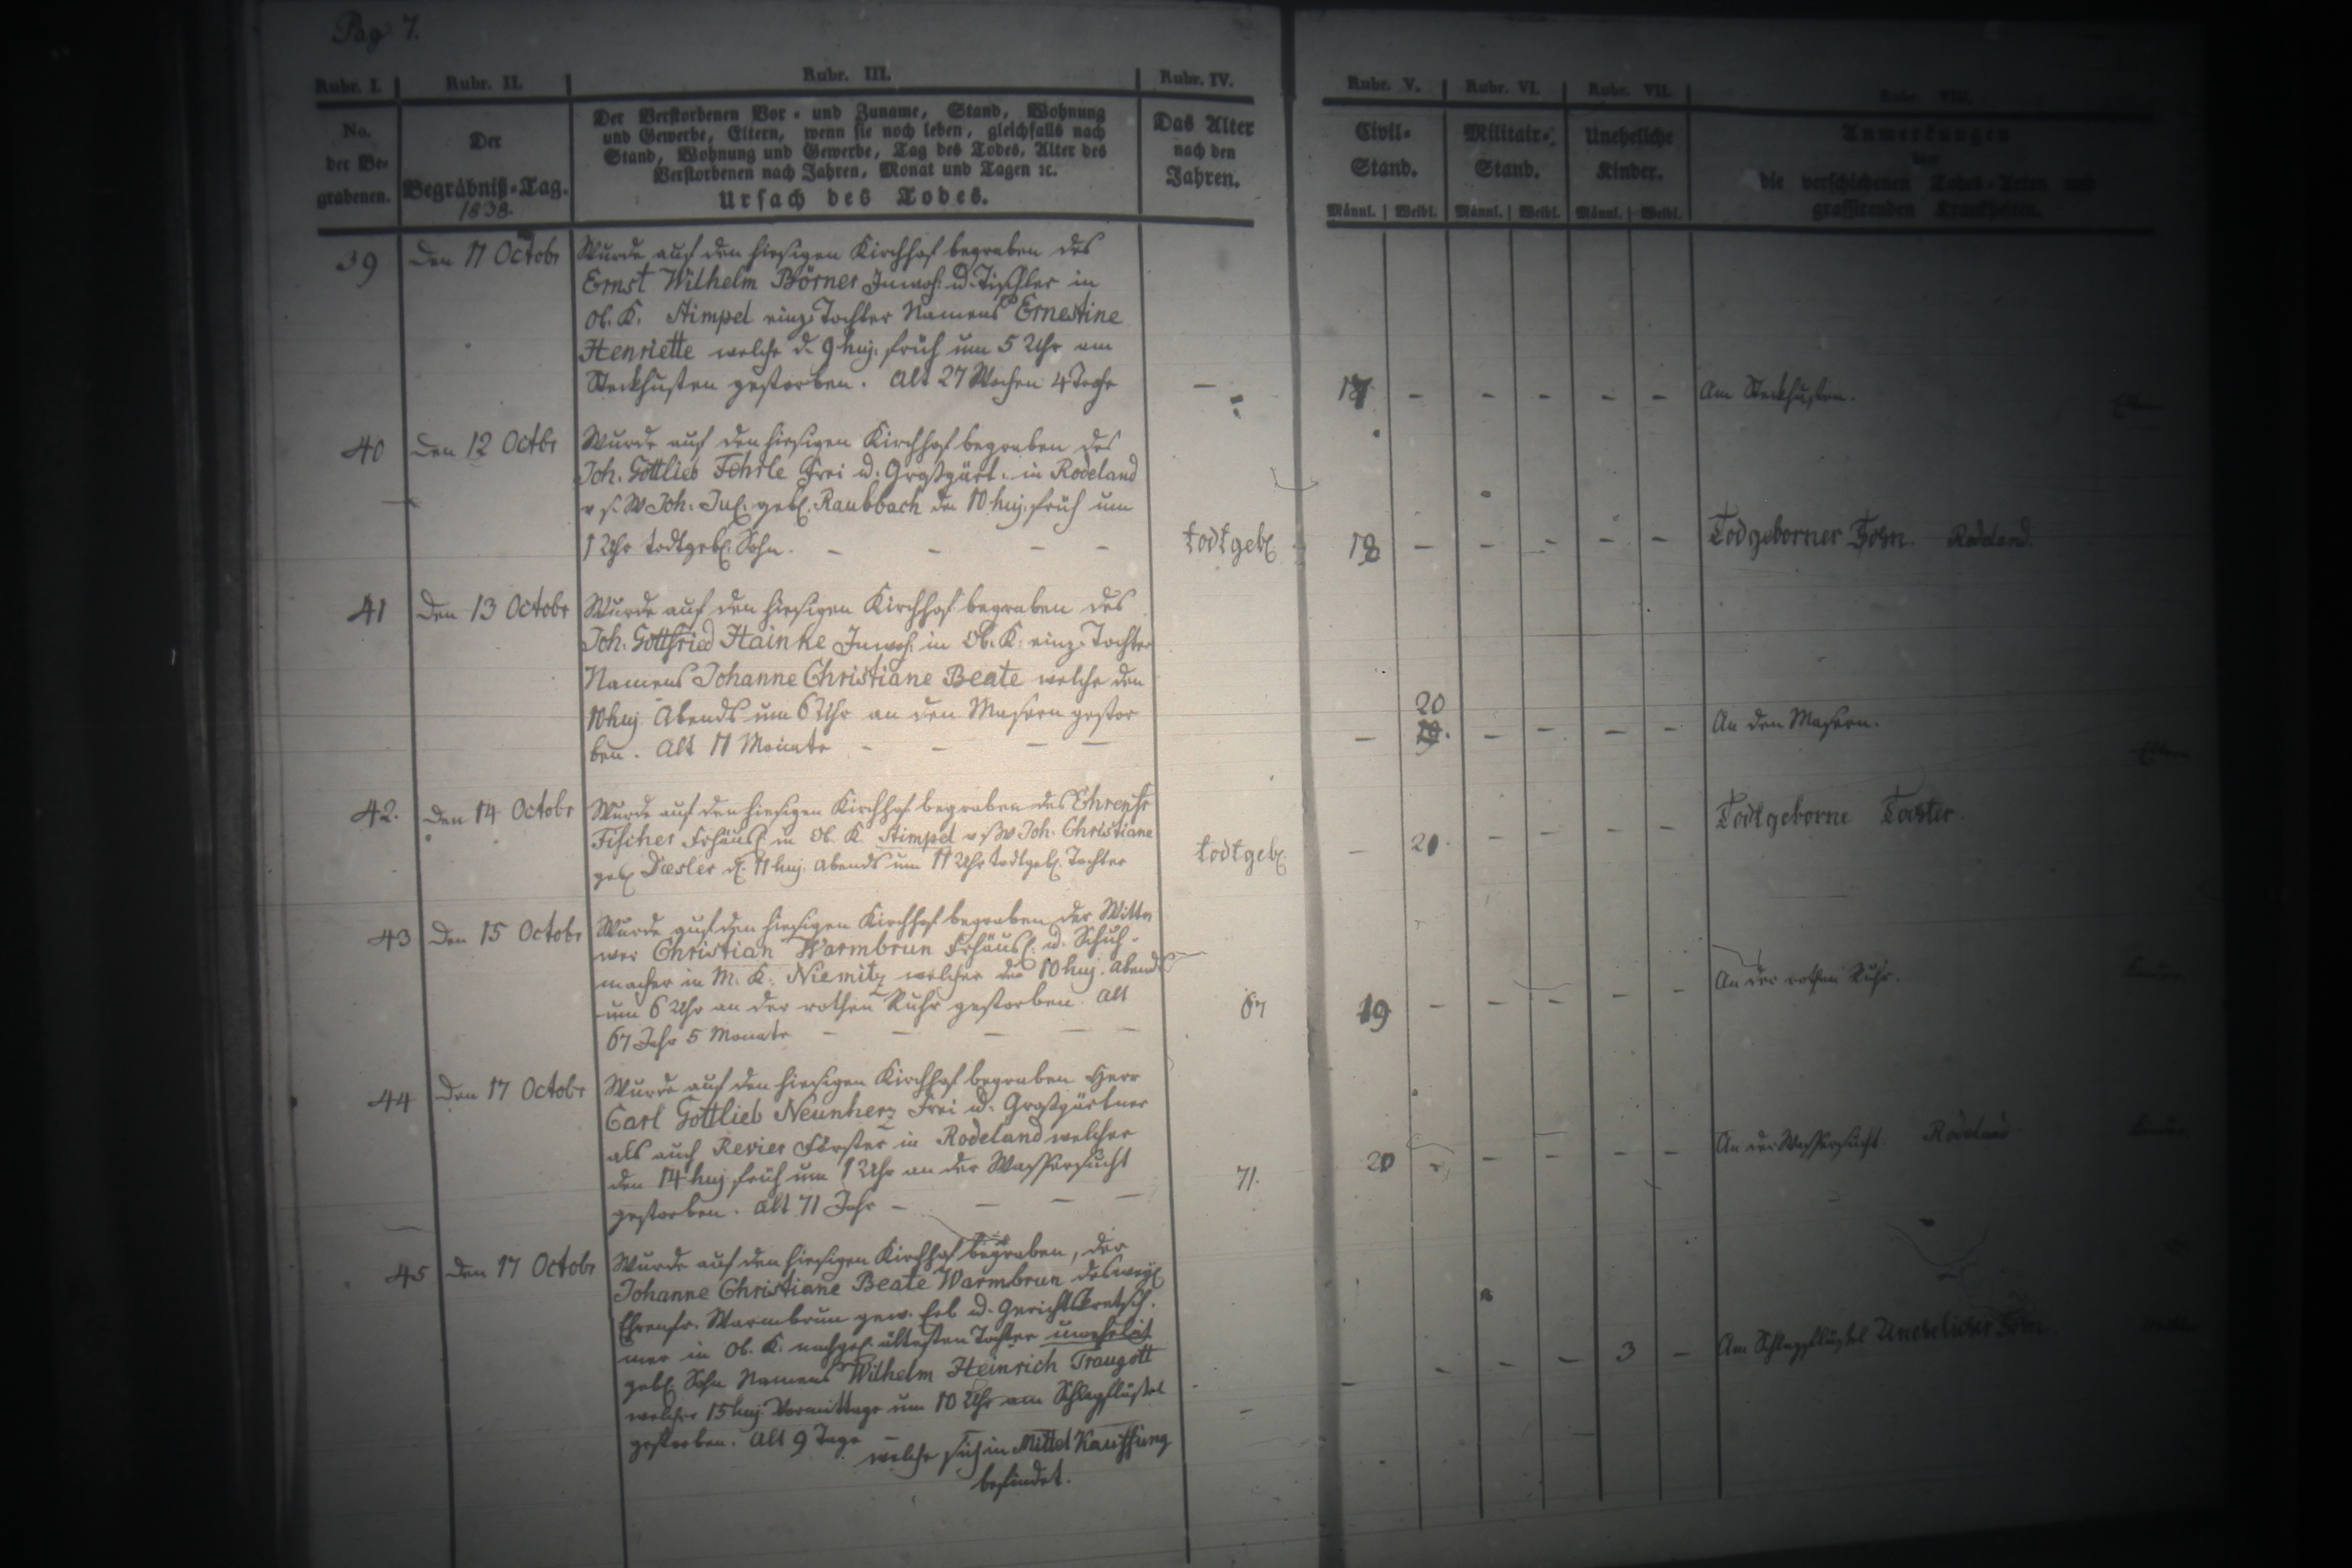 Pag 7.
Rubr. I. Rubr. II. Rubr. III. Rubr. IV. Rubr. V. Rubr. VI. Rubr. VII. Rubr. VIII.
No. der Be-grabenen.
Der Begräbniß-Tag. 1838.
Der Verstorbenen Vor- und Zuname, Stand, Wohnung
und Gewerbe, Eltern, wenn sie noch leben, gleichfalls nach
Stand, Wohnung und Gewerbe, Tag des Todes, Alter des
Verstorbenen nach Jahren, Monat und Tagen ꝛc.
Ursach des Todes.
Das Alter nach den Jahren.
Civil-Stand. Militair-Stand. Uneheliche Kinder.
Männl. Weibl. Männl. Weibl. Männl. Weibl.
Anmerkungen
über
die verschiedenen Todes-Arten und
grassirenden Krankheiten.
39 Den 11 Octobr Wurde auf den hiesigen Kirchhof begraben des
Ernst Wilhelm Börner Inwoh. u. Tischler in
Ob. K. Stimpel einz. Tochter Namens Ernestine
Henriette welche d. 9 huj. früh um 5 Uhr am
Steckhusten gestorben. Alt 27 Wochen 4 Tage — 17 - - - - - Am Steckhusten.
40 Den 12 Octbr Wurde auf den hiesigen Kirchhof begraben des
Joh. Gottlieb Frei u. Großgärt. in Rodeland
v s. W Joh. Jul. geb. Raubbach den 10 huj. früh um
1 Uhr todtgeb. Sohn. - - - - todtgeb. 18 - - - - - Todgeborner Sohn. Rodeland.
41 Den 13 Octobr Wurde auf den hiesigen Kirchhof begraben des
Joh. Gottfried Hainke Inwoh. in Ob. K. einz. Tochter
Namens Johanne Christiane Beate welche den
10 huj. Abends um 6 Uhr an den Masern gestor
ben. Alt 11 Monate - - - - - 20 - - - - An den Masern.
42. Den 14 Octobr Wurde auf den hiesigen Kirchhof begraben des Ehrenfr
Fischer Frhäusl. in Ob. K. Stimpel v s W Joh. Christiane
geb. d. 11 huj. Abends um 11 Uhr todtgeb. Tochter todtgeb. - 21 - - - - Todtgeborne Tochter.
43 Den 15 Octobr Wurde auf den hiesigen Kirchhof begraben der Wittw
wer Christian Warmbrun Frhäusl. u. Schuh-
macher in M. K. Niemitz welcher den 10 huj. Abends
um 6 Uhr an der rothen Ruhr gestorben. Alt
67 Jahr 5 Monate - - - - 67 19 - - - - - An der rothen Ruhr.
44 Den 17 Octobr Wurde auf den hiesigen Kirchhof begraben Herr
Carl Gottlieb Neunherz Frei u. Großgärtner
als auch Revier Förster in Rodeland welcher
den 14 huj früh um 1 Uhr an der Wassersucht
gestorben. Alt 71 Jahr - - - - 71. 20 - - - - - An der Wassersucht. Rodeland
45 Den 17 Octobr Wurde auf den hiesigen Kirchhof begraben, der
Johanne Christiane Beate Warmbrun des weyl
Ehrenfr. Warmbrun gew. Erb u. Gerichtskretsch.
mer in Ob. K. nachgel. ältesten Tochter unehelich
geb. Sohn Namens Wilhelm Heinrich Traugott
welcher 15 huj. Vormittags um 10 Uhr am Schlagflüßel
gestorben. Alt 9 Tage - - - - - - 3 - Am Schlagflüßel Unehelicher Sohn.
welche sich in Mittel Kauffung
befindet.